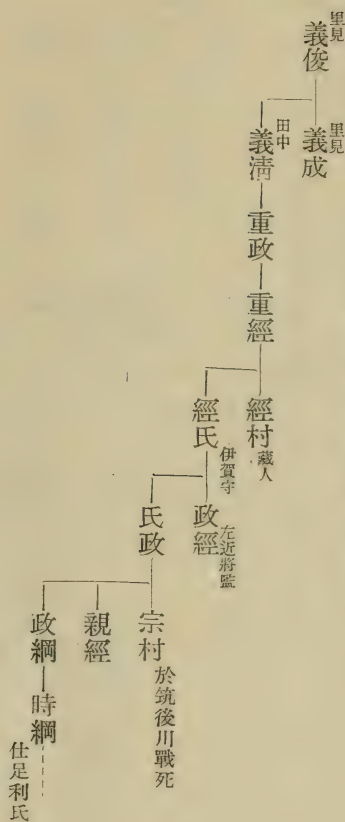 里見
義俊
里見
義成
田中
義淸
重政
重經
經村
藏人
經氏
伊賀守
政經
左近將監
氏政
宗村
於筑後川戰死
親經
政綱
時綱
仕足利氏